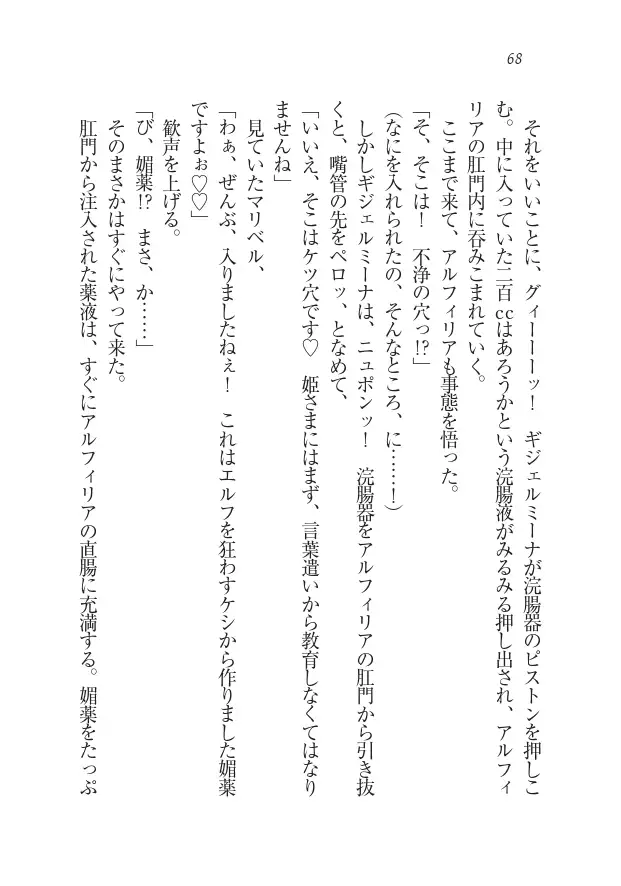 68
それをいいことに、グィーーーッ！　ギジェルミーナが浣腸器のピストンを押しこ
む。中に入っていた二百ccはあろうかという浣腸液がみるみる押し出され、アルフィ
リアの肛門内に呑みこまれていく。
ここまで来て、アルフィリアも事態を悟った。
「そ、そこは！　不浄の穴っ!?」
（なにを入れられたの、そんなところ、に……！）
しかしギジェルミーナは、ニュポンッ！　浣腸器をアルフィリアの肛門から引き抜
くと、嘴管の先をペロッ、となめて、
「いいえ、そこはケツ穴です♡　姫さまにはまず、言葉遣いから教育しなくてはなり
ませんね」
見ていたマリベル、
「わぁ、ぜんぶ、入りましたねぇ！　これはエルフを狂わすケシから作りました媚薬
ですよぉ♡♡」
歓声を上げる。
「び、媚薬!?　まさ、か……」
そのまさかはすぐにやって来た。
肛門から注入された薬液は、すぐにアルフィリアの直腸に充満する。媚薬をたっぷ